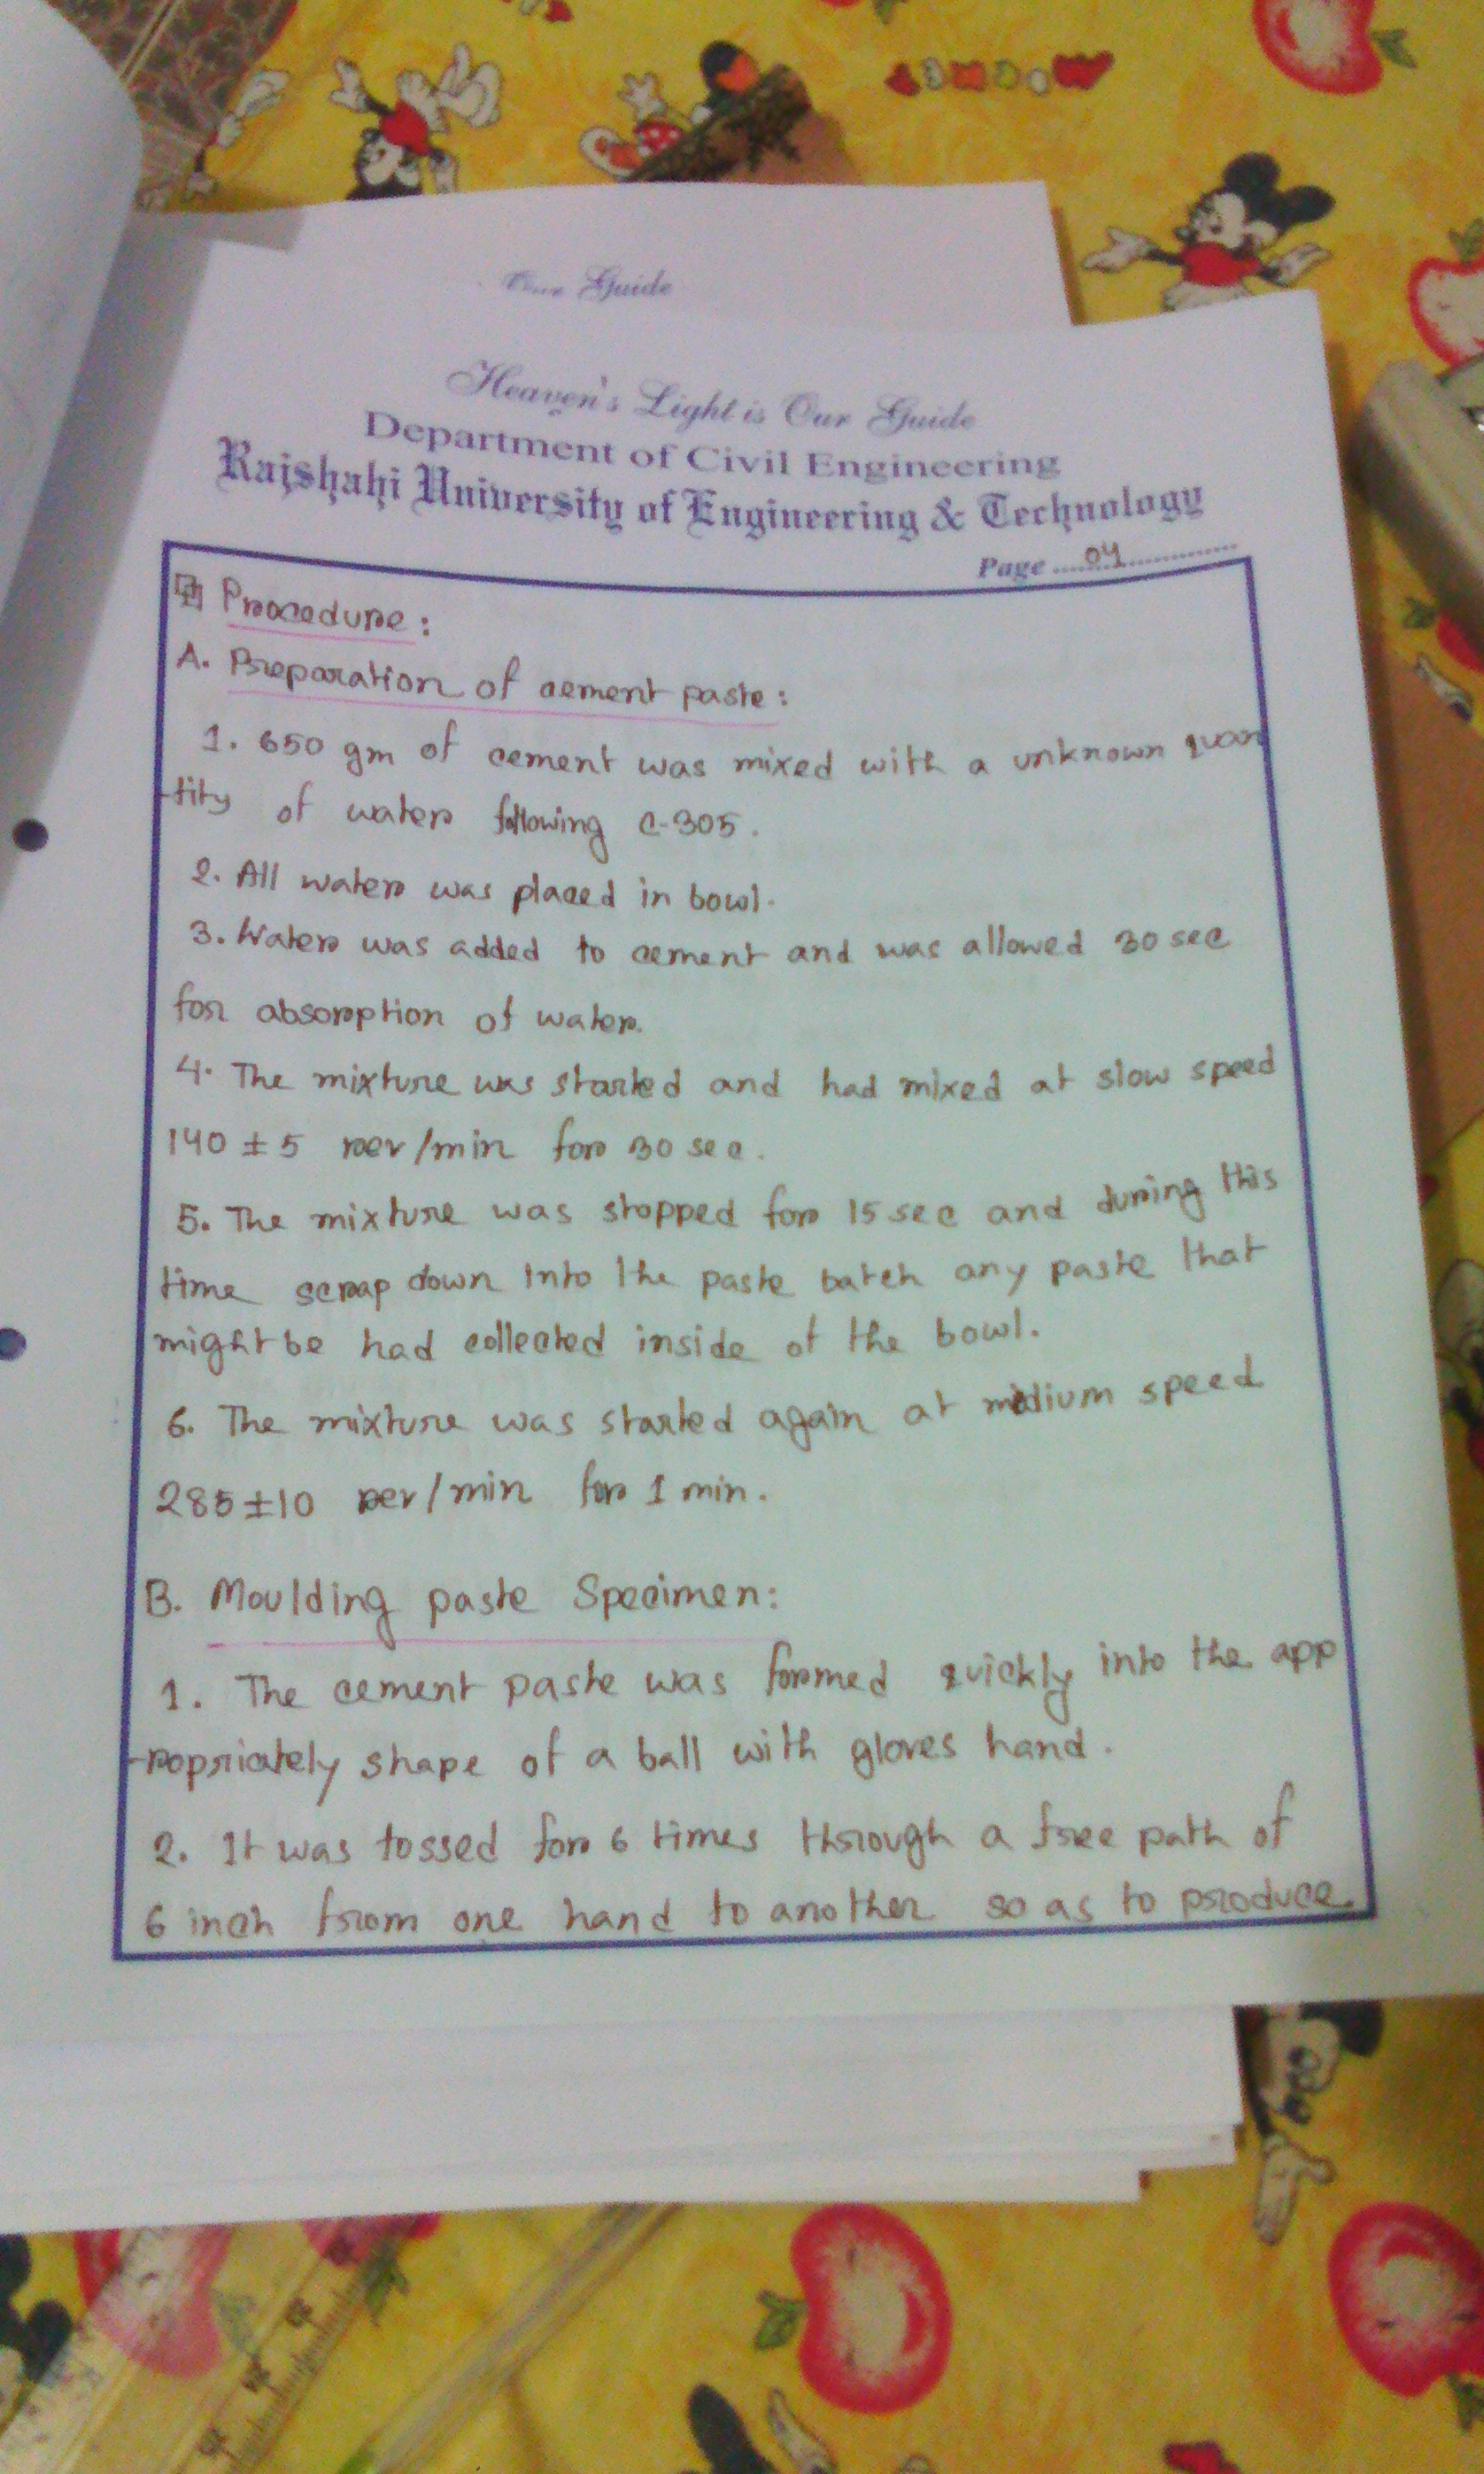 Our Guide
Heaven's Light is Our Guide
Department of Civil Engineering
Rajshahi University of Engineering & Technology
Page ....04..............
Procedure:
A. Preparation of cement paste:
1. 650 gm of cement was mixed with a unknown quan
-tity of water following C-305.
2. All water was placed in bowl.
3. Water was added to cement and was allowed 30 sec
for absorption of water.
4. The mixture was started and had mixed at slow speed
140 ± 5 rev/min for 30 sec.
5. The mixture was stopped for 15 sec and during this
time scrap down into the paste batch any paste that
might be had collected inside of the bowl.
6. The mixture was started again at midium speed
285±10 rev/min for 1 min.
B. Moulding paste Specimen:
1. The cement paste was formed quickly into the app
-ropriately shape of a ball with gloves hand.
2. It was tossed for 6 times through a free path of
6 inch from one hand to another so as to produce